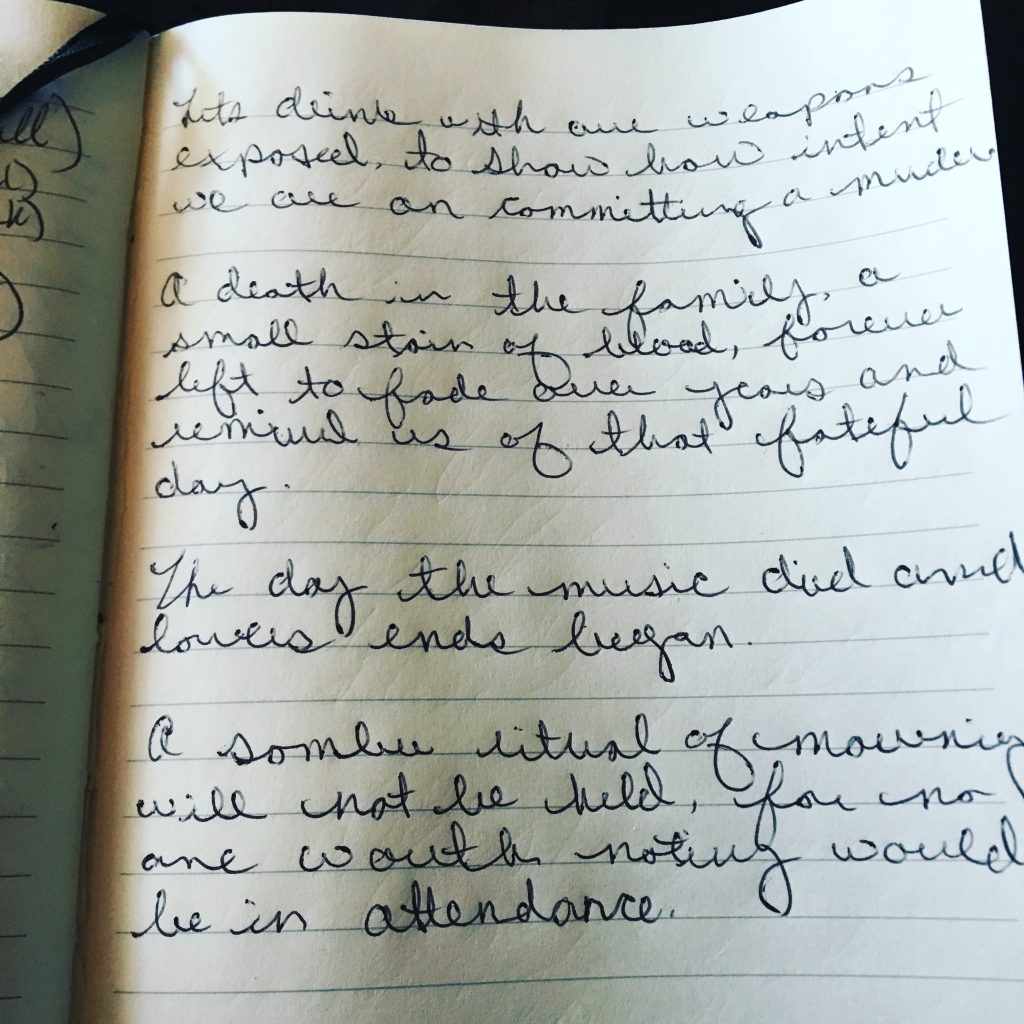 ell)
k)
Lets drink with our weapons
exposed, to show how intent
we are on committing a muder
A death in the family, a
small stain of blood, forever
left to fade over years and
remind us of that fateful
day.
The day the music died and
lovers ends began.
A sombre ritual of mourning
will not be held, for no
one worth noting would
be in attendance.